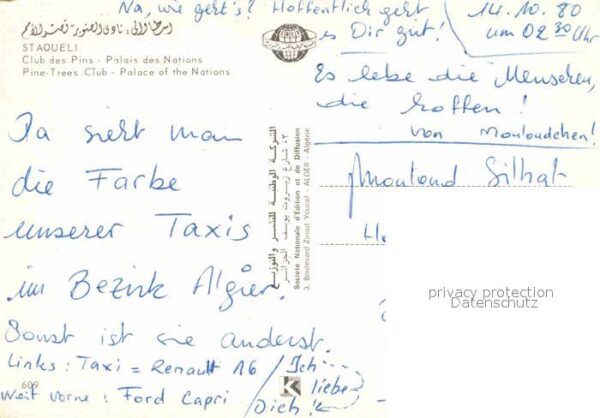 Na, wie geht's? Hoffentlich geht
es Dir gut!
14.10.80
um 02 30 Uhr
اسطاوالي : نادي الصنوبر قصر الأمم
STAOUELI
Club des Pins - Palais des Nations
Pine-Trees Club - Palace of the Nations
Es lebe die Menschen,
die hoffen!
von Mouloudchen!
Da sieht man
die Farbe
unserer Taxis
im Bezirk Algier.
Sonst ist sie anderst.
Links : Taxi = Renault 16
Weit vorne : Ford Capri
Ich
liebe
Dich!
609
الشركة الوطنية للنشر والتوزيع
3، شارع زيروت يوسف الجزائر
Société Nationale d'Edition et de Diffusion
3, Boulevard Zirout Youcef - ALGER - Algérie
K
privacy protection
Datenschutz